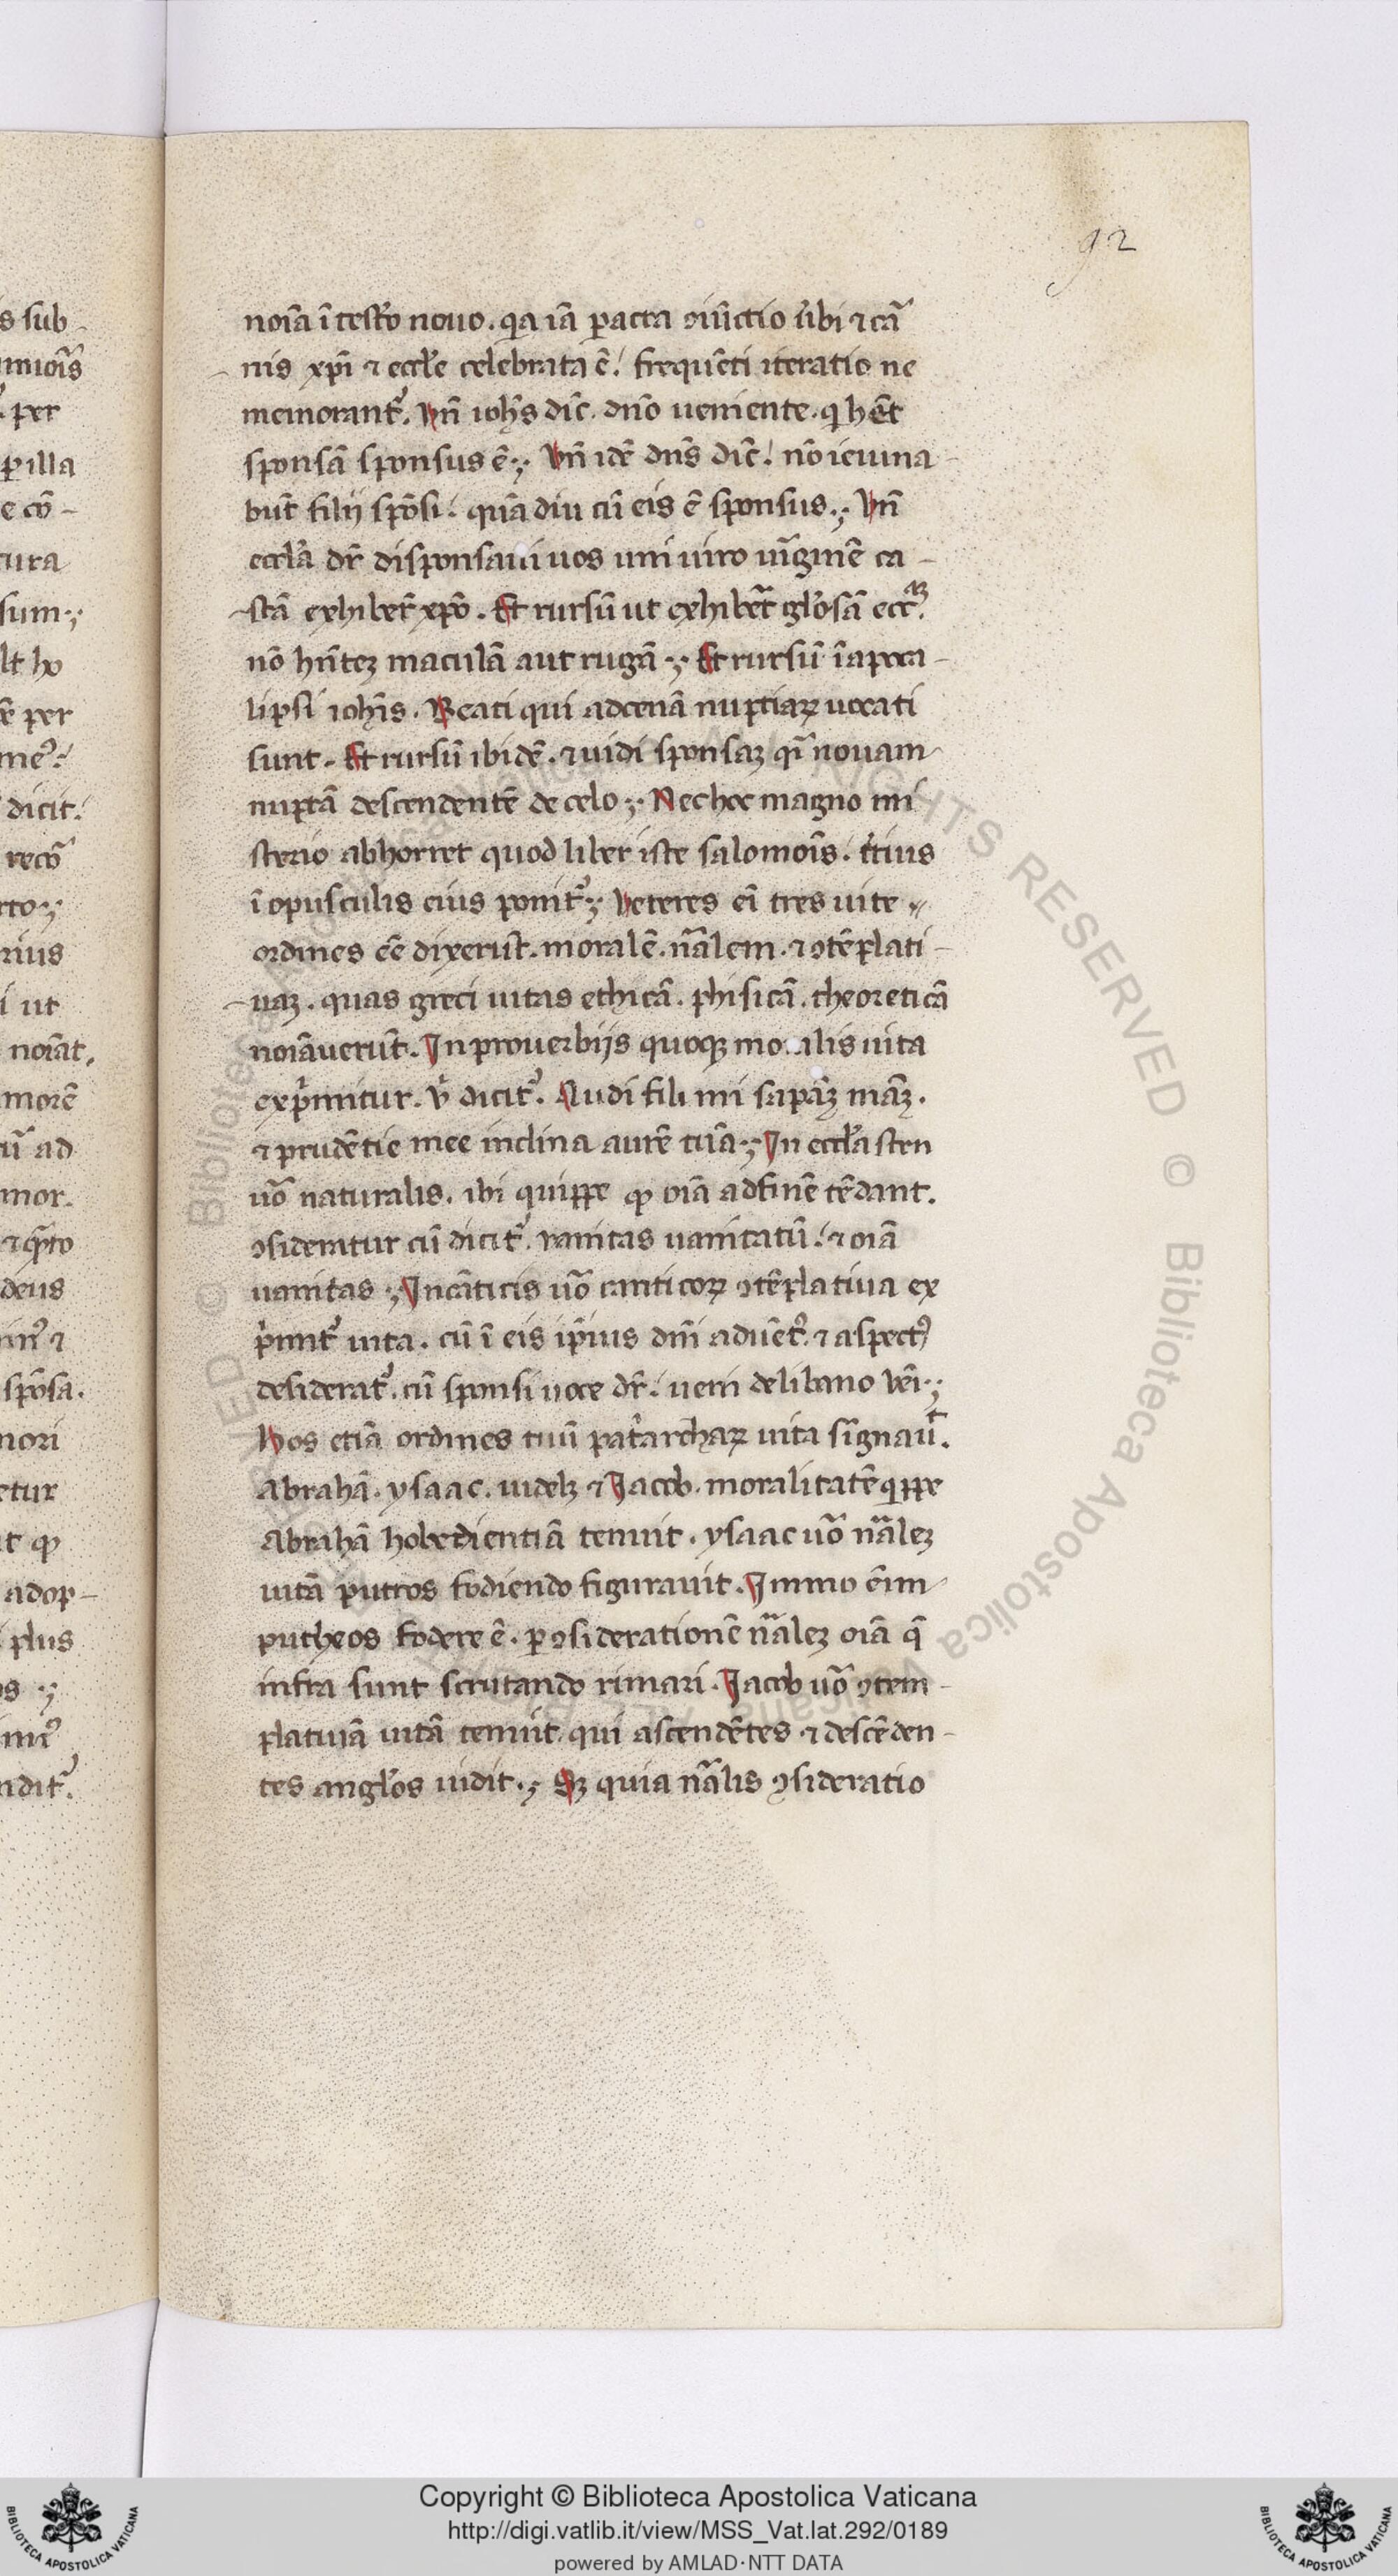 92
noīa ī testo nouo. qa iā pacta ꝯiūctio ubi ⁊ car̄
nis xp̄i ⁊ eccl̄e celebrata ē. frequēti iteratio ne
memorant᷑. Vn̄ ioh̄s dic̄. dn̄o ueniente. q hēt
sponsā sponsus ē; Vn̄ idē dn̄s dic̄. nō ieiuna-
būt filij spōsi. quādiu cū eis ē sponsus; Vn̄
eccl̄a dr̄ disponsaui uos uni uiro uirginē ca-
stā exhiber̄ xp̄o. Et rursū ut exhiberet glōsā
nō hn̄teꝫ maculā aut rugā; Et rursū ī apoca-
lipsi ioh̄is. Beati qui ad cenā nuptiaꝝ uocati
sunt. Et rursū ibidē. ⁊ uidi sponsaꝫ qi nouam
nuptā descendentē de celo; Nec hoc magno mi
sterio abhorret quod liber iste salomōis. tius
ī opusculis eius ponit᷑; Veteres ei tres uite
ordines eē dixerūt. moralē. nālem. ⁊ ꝯtēplati-
uaꝫ. quas greci uitas ethicā. phisicā. theoreticā
noīauerūt. In prouerbijs quoqꝫ mo alis uita
exprimitur. u dicit᷑. Audi fili mi sapiāꝫ māꝫ.
⁊ prudētie mee inclina aurē tuā; In eccl̄asten
uō naturalis. ibi quippe ꝙ oīā ad finē tēdant.
ꝯsideratur cū dicit᷑. uanitas uanitatū. ⁊ oīā
uanitas; In cāticis uō canticoꝝ ꝯtēplatiua ex
primit᷑ uita. cū ī eis ipīus dn̄i aduēt᷒ ⁊ aspect᷒
desiderat᷑. cū sponsi uoce dr̄. ueni de libano uēi;
Hos etiā ordines triū patriarchaꝝ uita signauit.
Abrahā. ysaac. uidelꝫ ⁊ Iacob. moralitatē qippe
Abrahā hobedientiā tenuit. ysaac uō nāleꝫ
uitā puteos fodiendo figurauit. Immo ēim
putheos fodere ē. p ꝯsiderationē nāleꝫ oīā q̄
infra sunt scrutando rimari. Iacob uō ꝯtem-
platiuā uitā tenuit. qui ascendētes ⁊ descēden-
tes angl̄os uidit; Sꝫ quia nālis ꝯsideratio
Copyright © Biblioteca Apostolica Vaticana
http://digi.vatlib.it/view/MSS_Vat.lat.292/0189
powered by AMLAD·NTT DATA